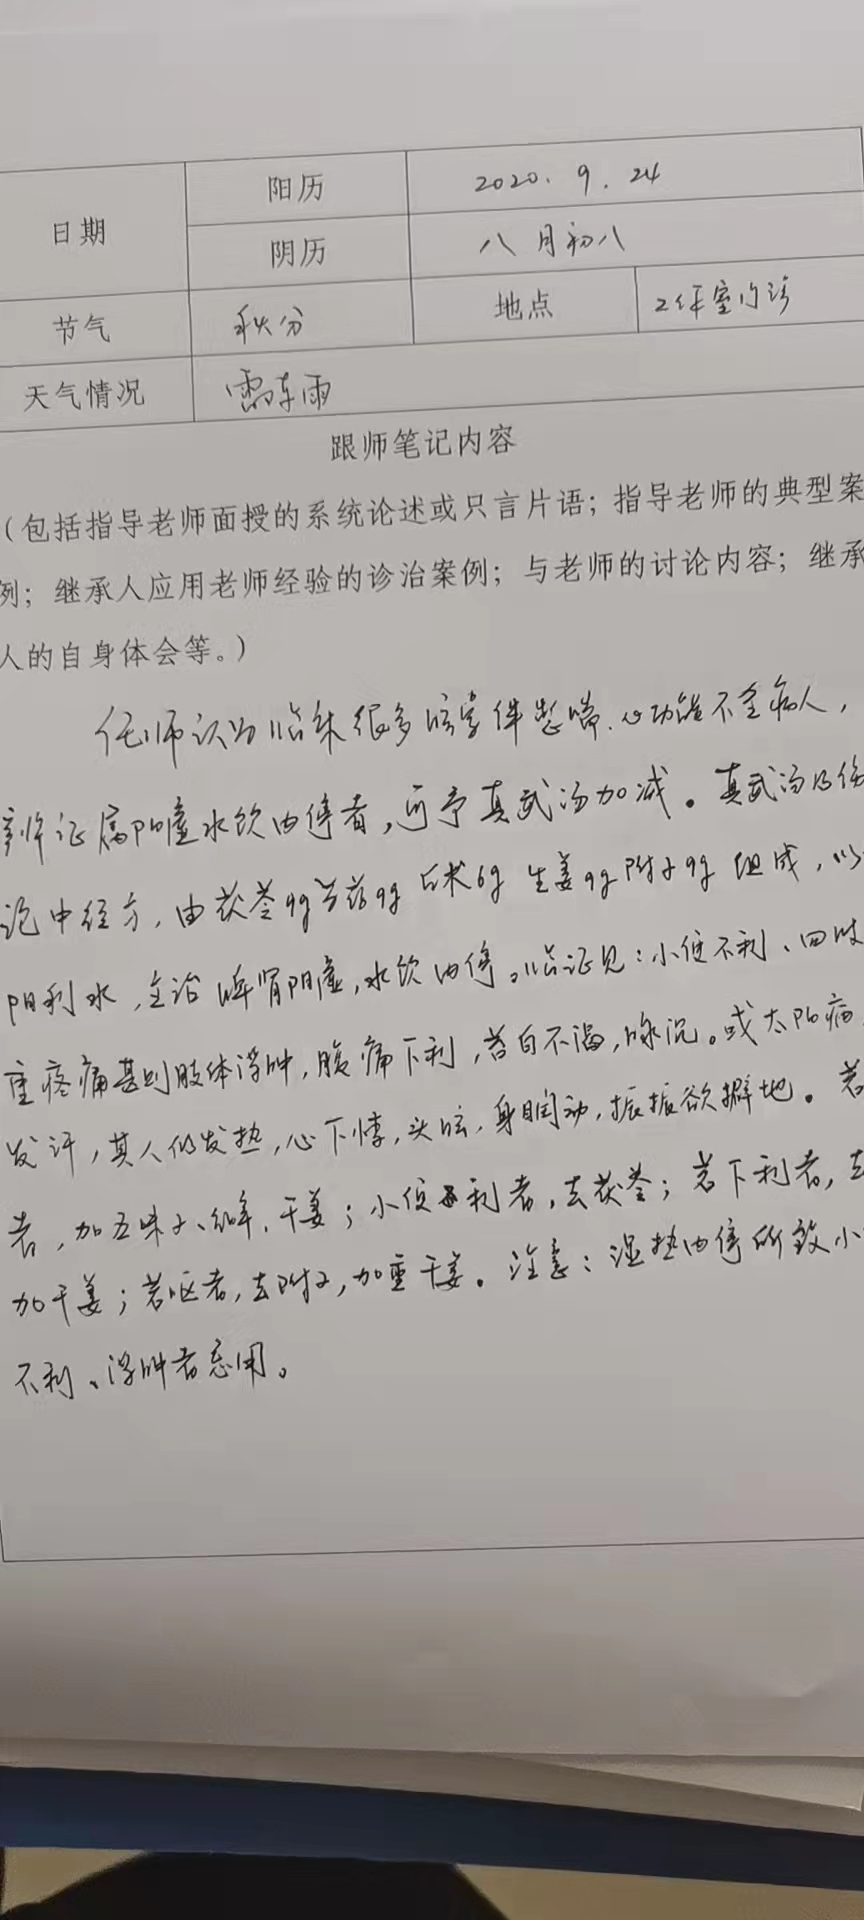 日期 阳历 2020. 9. 24
阴历 八月初八
节气 秋分 地点 工作室门诊
天气情况 雷阵雨
跟师笔记内容
（包括指导老师面授的系统论述或只言片语；指导老师的典型案
例；继承人应用老师经验的诊治案例；与老师的讨论内容；继承
人的自身体会等。）
任师认为临床很多咳嗽伴憋喘、心功能不全病人，
辨证属阳虚水饮内停者，可予真武汤加减。真武汤乃伤
论中经方，由茯苓9g芍药9g白术6g 生姜9g附子9g 组成，以
阳利水，主治脾肾阳虚，水饮内停。临证见：小便不利、四肢
重疼痛甚则肢体浮肿，腹痛下利，苔白不渴，脉沉。或太阳病，
发汗，其人仍发热，心下悸，头眩，身瞤动，振振欲擗地。若
者，加五味子、细辛、干姜；小便利者，去茯苓；若下利者，去
加干姜；若呕者，去附子，加重干姜。注意：湿热内停所致小
不利、浮肿者忌用。